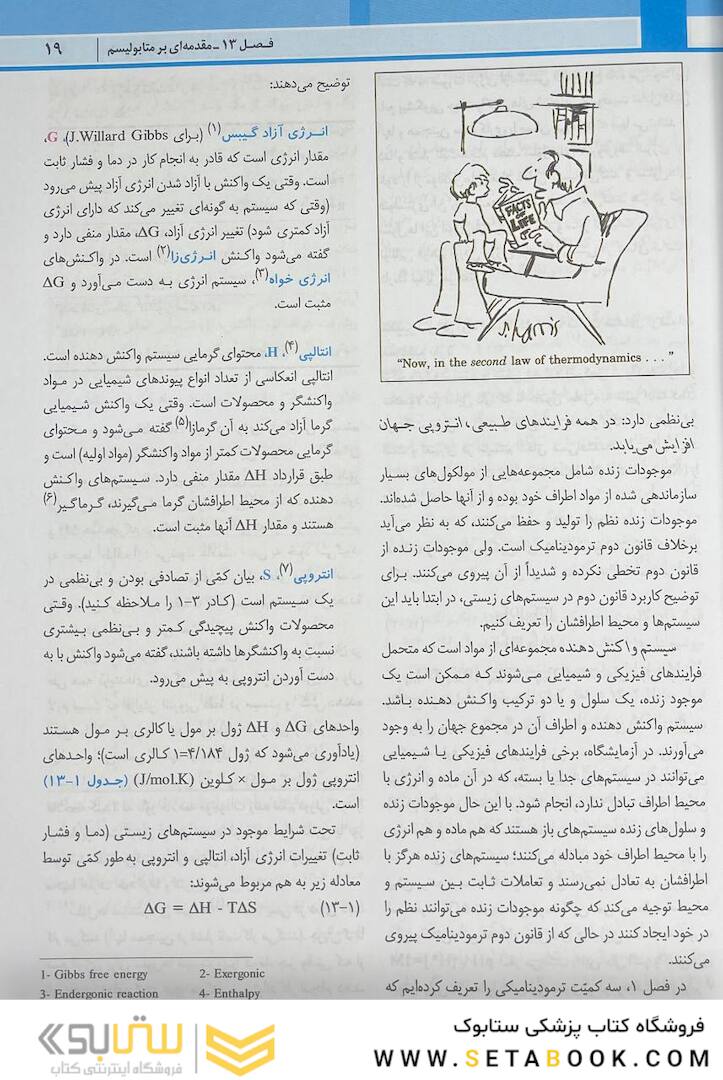 فصل ۱۳ - مقدمه‌ای بر متابولیسم | ۱۹
FACTS OF LIFE
S. Harris
"Now, in the second law of thermodynamics . . ."
بی‌نظمی دارد: در همه فرایندهای طبیعی، انتروپی جهان
افزایش می‌یابد.
موجودات زنده شامل مجموعه‌هایی از مولکول‌های بسیار
سازماندهی شده از مواد اطراف خود بوده و از آنها حاصل شده‌اند.
موجودات زنده نظم را تولید و حفظ می‌کنند، که به نظر می‌آید
برخلاف قانون دوم ترمودینامیک است. ولی موجودات زنده از
قانون دوم تخطی نکرده و شدیداً از آن پیروی می‌کنند. برای
توضیح کاربرد قانون دوم در سیستم‌های زیستی، در ابتدا باید این
سیستم‌ها و محیط اطرافشان را تعریف کنیم.
سیستم واکنش دهنده مجموعه‌ای از مواد است که متحمل
فرایندهای فیزیکی و شیمیایی می‌شوند که ممکن است یک
موجود زنده، یک سلول و یا دو ترکیب واکنش دهنده باشد.
سیستم واکنش دهنده و اطراف آن در مجموع جهان را به وجود
می‌آورند. در آزمایشگاه، برخی فرایندهای فیزیکی یا شیمیایی
می‌توانند در سیستم‌های جدا یا بسته، که در آن ماده و انرژی با
محیط اطراف تبادل ندارد، انجام شود. با این حال موجودات زنده
و سلول‌های زنده سیستم‌های باز هستند که هم ماده و هم انرژی
را با محیط اطراف خود مبادله می‌کنند؛ سیستم‌های زنده هرگز با
اطرافشان به تعادل نمی‌رسند و تعاملات ثابت بین سیستم و
محیط توجیه می‌کند که چگونه موجودات زنده می‌توانند نظم را
در خود ایجاد کنند در حالی که از قانون دوم ترمودینامیک پیروی
می‌کنند.
در فصل ۱، سه کمیّت ترمودینامیکی را تعریف کرده‌ایم که
توضیح می‌دهند:
انرژی آزاد گیبس(۱) (برای J.Willard Gibbs)، G،
مقدار انرژی است که قادر به انجام کار در دما و فشار ثابت
است. وقتی یک واکنش با آزاد شدن انرژی آزاد پیش می‌رود
(وقتی که سیستم به گونه‌ای تغییر می‌کند که دارای انرژی
آزاد کمتری شود) تغییر انرژی آزاد، ΔG، مقدار منفی دارد و
گفته می‌شود واکنش انرژی‌زا(۲) است. در واکنش‌های
انرژی خواه(۳)، سیستم انرژی به دست می‌آورد و ΔG
مثبت است.
انتالپی(۴)، H، محتوای گرمایی سیستم واکنش دهنده است.
انتالپی انعکاسی از تعداد انواع پیوندهای شیمیایی در مواد
واکنشگر و محصولات است. وقتی یک واکنش شیمیایی
گرما آزاد می‌کند به آن گرمازا(۵) گفته می‌شود و محتوای
گرمایی محصولات کمتر از مواد واکنشگر (مواد اولیه) است و
طبق قرارداد ΔH مقدار منفی دارد. سیستم‌های واکنش
دهنده که از محیط اطرافشان گرما می‌گیرند، گرماگیر(۶)
هستند و مقدار ΔH آنها مثبت است.
انتروپی(۷)، S، بیان کمّی از تصادفی بودن و بی‌نظمی در
یک سیستم است (کادر ۳-۱ را ملاحظه کنید). وقتی
محصولات واکنش پیچیدگی کمتر و بی‌نظمی بیشتری
نسبت به واکنشگرها داشته باشند، گفته می‌شود واکنش با به
دست آوردن انتروپی به پیش می‌رود.
واحدهای ΔG و ΔH ژول بر مول یا کالری بر مول هستند
(یادآوری می‌شود که ژول ۴/۱۸۴=۱ کالری است)؛ واحدهای
انتروپی ژول بر مول × کلوین (J/mol.K) (جدول ۱-۱۳)
است.
تحت شرایط موجود در سیستم‌های زیستی (دما و فشار
ثابت) تغییرات انرژی آزاد، انتالپی و انتروپی به طور کمّی توسط
معادله زیر به هم مربوط می‌شوند:
(۱۳-۱) ΔG = ΔH - TΔS
1- Gibbs free energy 2- Exergonic
3- Endergonic reaction 4- Enthalpy
فروشگاه کتاب پزشکی ستابوک
WWW.SETABOOK.COM
ستابوک
فروشگاه اینترنتی کتاب